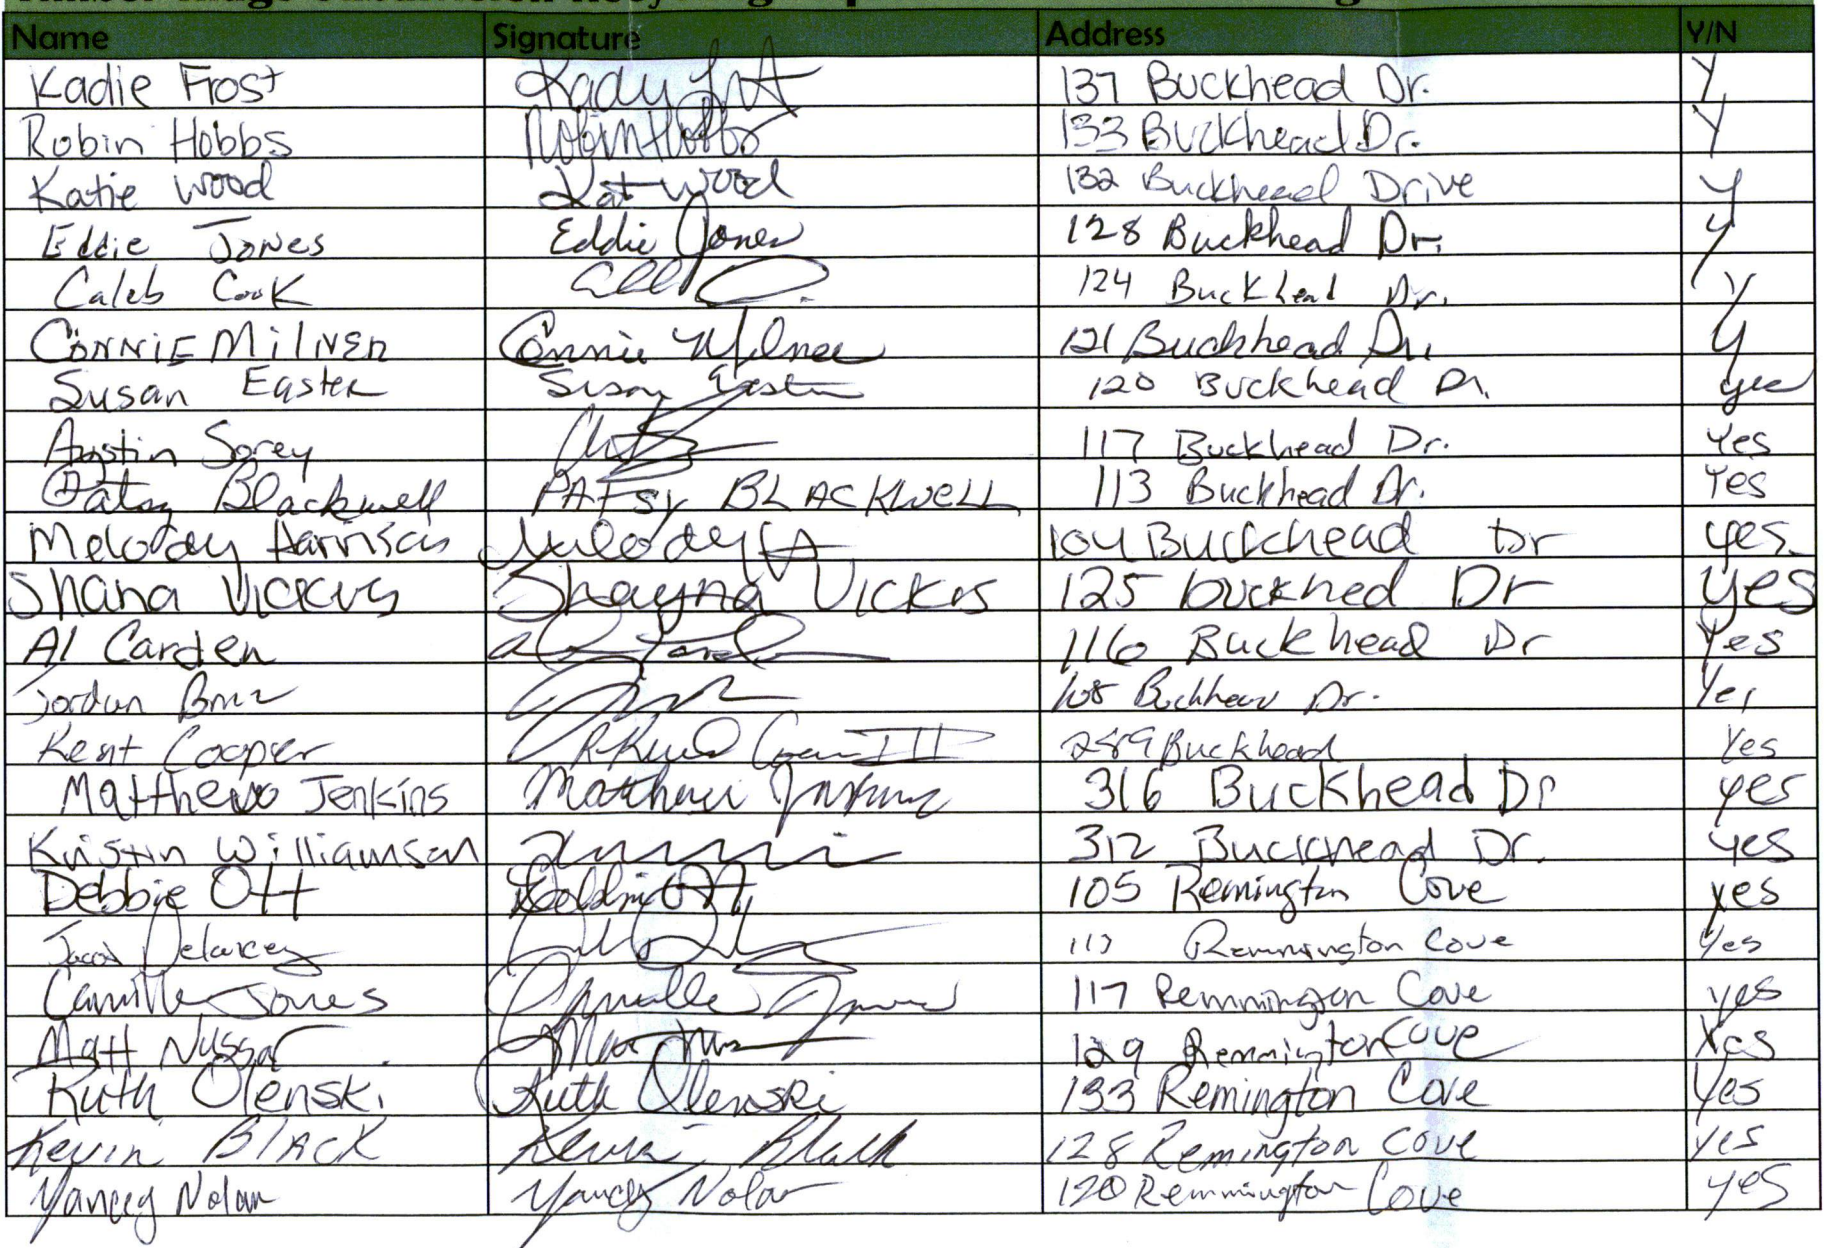 Name Signature Address Y/N
Kadie Frost Kady Frost 137 Buckhead Dr. Y
Robin Hobbs Robin Hobbs 133 Buckhead Dr. Y
Katie Wood Kat Wood 132 Buckhead Drive Y
Eddie Jones Eddie Jones 128 Buckhead Dr. Y
Caleb Cook 124 Buckhead Dr. Y
Connie Milner Connie Milner 121 Buckhead Dr. Y
Susan Easter Susan Easter 120 Buckhead Dr. yes
Austin Sorey 117 Buckhead Dr. Yes
Patsy Blackwell PATSY BLACKWELL 113 Buckhead Dr. Yes
Melody Harrison Melody 104 Buckhead Dr yes
Shana Vickers Shayna Vickrs 125 buckhed Dr yes
Al Carden 116 Buckhead Dr Yes
Jordan 108 Buckhead Dr. Yes
Kent Cooper III 289 Buckhead Yes
Matthew Jenkins Matthew Jenkins 316 Buckhead Dr yes
Kristin Williamson 312 Buckhead Dr. yes
Debbie Ott Debbie Ott 105 Remington Cove yes
Jacob Delancey Remmington Cove Yes
Camille Jones Camille Jones 117 Remmington Cove yes
Matt 129 Remmington Cove Yes
Ruth Olenski Ruth Olenski 133 Remington Cove Yes
Kevin Black Kevin Black 128 Remington Cove yes
Yancey Nolan Yancey Nolan 120 Remmington Cove yes